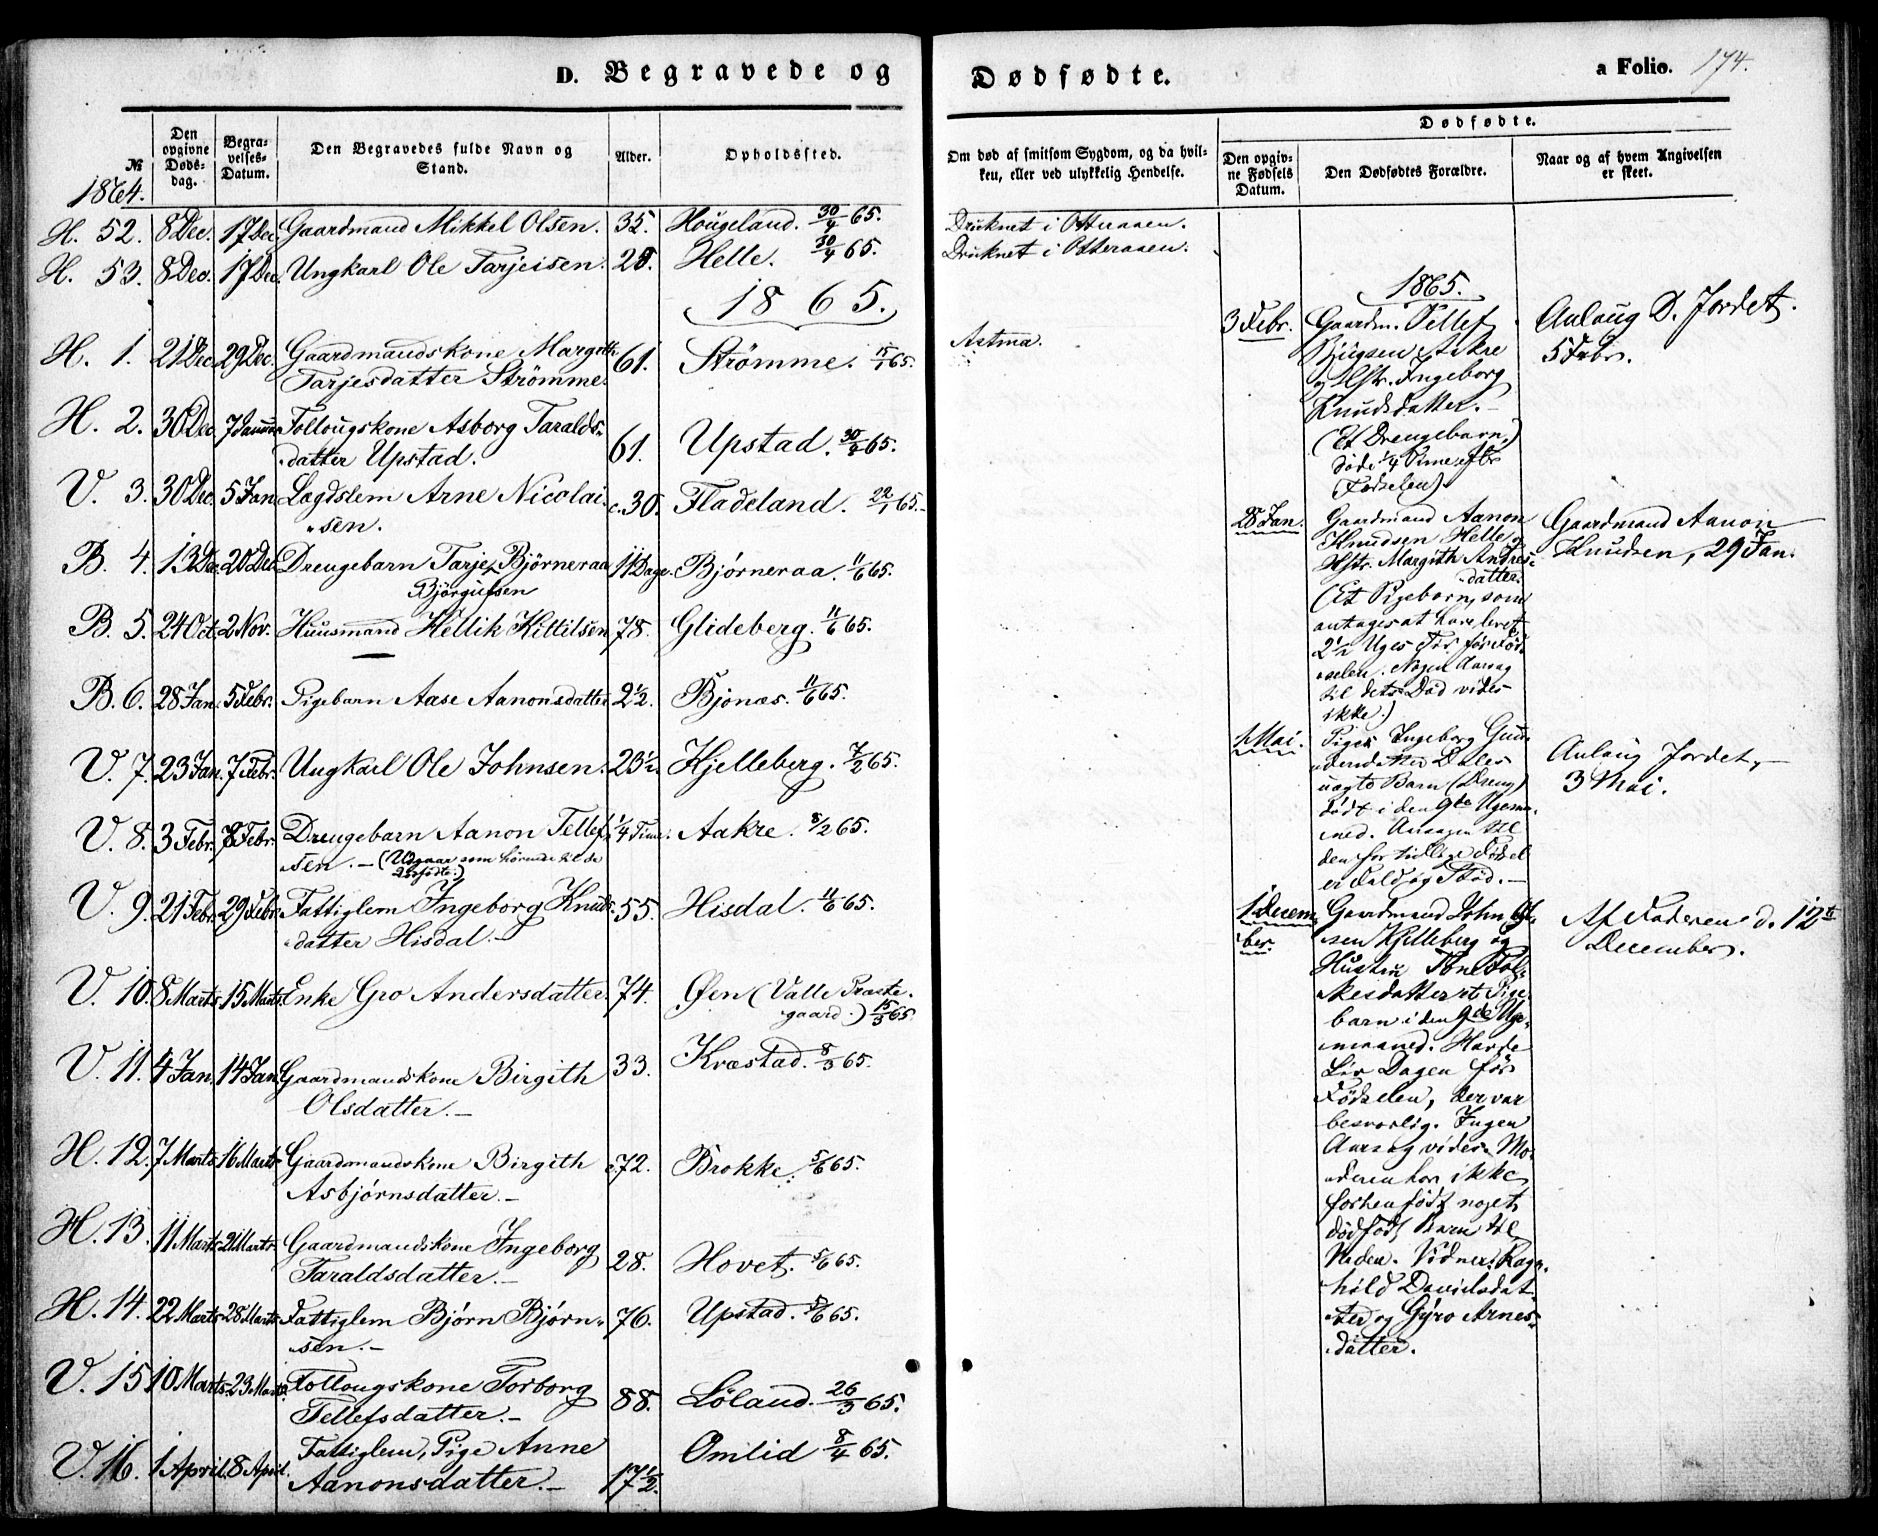 D. Begravede og
Dødfødte.
a Folio. 174.
№
Den opgivne Døds-dag.
Begra-velses-Datum.
Den Begravedes fulde Navn og Stand.
Alder.
Opholdssted.
Om død af smitsom Sygdom, og da hvil-
ken, eller ved ulykkelig Hendelse.
Dødfødte.
Den opgiv-ne Fødsels Datum.
Den Dødfødtes Forældre.
Naar og af hvem Angivelsen er skeet.
1864.
H. 52. 8 Dec. 17 Dec. Gaardmand Mikkel Olsen. 35. Hougeland. 30/4 65. Druknet i Otteraaen.
H. 53. 8 Dec. 17 Dec. Ungkarl Ole Tarjeisen. 28. Helle. 30/4 65. Druknet i Otteraaen.
1865.
H. 1. 21 Dec. 29 Dec. Gaardmandskone Margith
Tarjesdatter Strömme. 61. Strömme. 15/1 65. Astma.
H. 2. 30 Dec. 7 Januar Follougskone Asborg Taralds-
datter Upstad. 61. Upstad. 65.
V. 3. 30 Dec. 5 Jan. Lægdslem Arne Nicolai-
sen. c. 30. Fladeland. 22/1 65.
B. 4. 13 Dec. 20 Dec. Drengebarn Tarje Bjørneraa
Björgufsen 11 Dage. Bjørneraa. 11/6 65.
B. 5. 24 Oct. 2 Nov. Huusmand Hellik Kittilsen 78. Glideberg. 11/6 65.
B. 6. 28 Jan. 5 Febr. Pigebarn Aase Aanonsdatter 2 1/2. Bjonæs. 11/6 65.
V. 7. 23 Jan. 7 Febr. Ungkarl Ole Johnsen. 23 1/2. Kjelleberg. 7/2 65.
V. 8. 3 Febr. 8 Febr. Drengebarn Aanon Tellef-
sen. (Udgaar som hørende til de
Dødfødte.) 1/4 Time. Aakre. 8/2 65.
V. 9. 21 Febr. 29 Febr. Fattiglem Ingeborg Knuds-
datter Hisdal. 55. Hisdal. 11/6 65.
V. 10. 8 Marts 15 Marts. Enke Gro Andersdatter. 74. Øen (Valle Præste-
gaard.) 15/3 65.
V. 11. 4 Jan. 14 Jan. Gaardmandskone Birgith
Olsdatter. 33. Kvæstad. 8/3 65.
H. 12. 7 Marts 16 Marts Gaardmandskone Birgith
Asbjørnsdatter. 72. Brokke. 5/6 65.
H. 13. 11 Marts 21 Marts. Gaardmandskone Ingeborg
Taraldsdatter. 28. Hovet. 5/6 65.
H. 14. 22 Marts 28 Marts Fattiglem Bjørn Bjørn-
sen. 76. Upstad. 5/6 65.
V. 15 10 Marts 23 Marts. Follougskone Torborg
Tellefsdatter. 88. Løland. 26/3 65.
V. 16. 1 April. 8 April. Fattiglem, Pige Anne
Aanonsdatter. 17 1/2. Omlid 8/4 65.
1865.
3 Febr. Gaardm. Tellef
Aakre
og Hstr. Ingeborg
Knudsdatter.
(Et Drengebarn,)
døde 1/4 Time efter
Fødselen)
Aaloug D. Jordet.
5 Febr.
28 Jan. Gaardmand Aanon
Knudsen Helle og
Hstr. Margith Andres-
datter.
(Et Pigebarn, som
antages at have levet
2 1/2 Uges Tid før Fød-
selen. Nogen Aarsag
til dets Død vides
ikke.)
Gaardmand Aanon
Knudsen, 29 Jan.
1 Mai. Pigen Ingeborg Gun-
Dales
uægte Barn (Dreng)
født i den 9de Ugema-
ned. Aarsagen til
den for tidlige Fødsel
er Fald og Stöd.
Aaloug Jordet,
3 Mai.
1 Decem-
ber. Gaardmand John
sen Kjelleberg og
Hustru Tone Fol-
kesdatter et Pige-
barn i den 9de Uge-
maaned. Havde
Liv Dagen før
Fødselen, der var
besværlig. Ingen
Aarsag vides. Mo-
deren har ikke
forhen født noget
dødfødt Barn til
Verden. Vidner: Ragn-
hild Davidsdat-
ter og Gÿro Arnes-
datter.
Af Faderen d. 12te
December.